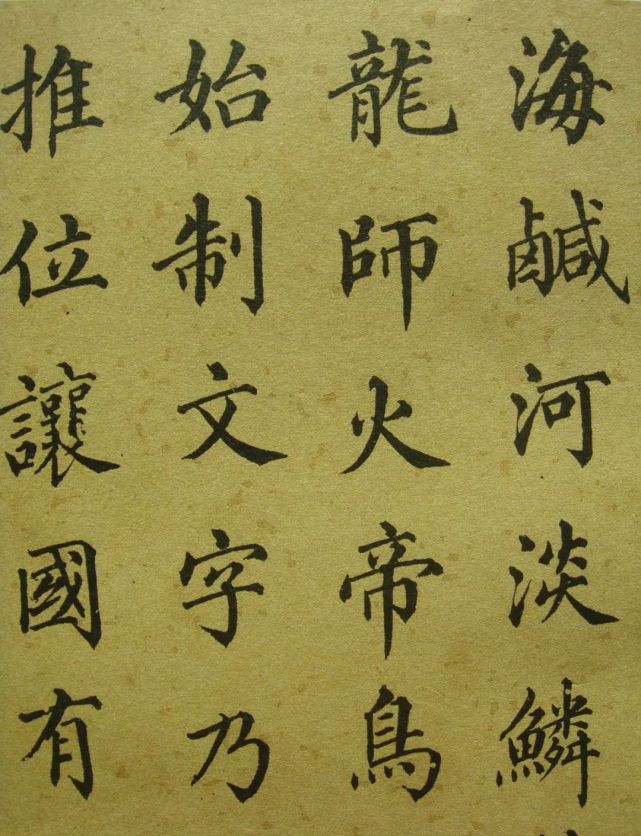 海鹹河淡鱗
龍師火帝鳥
始制文字乃
推位讓國有